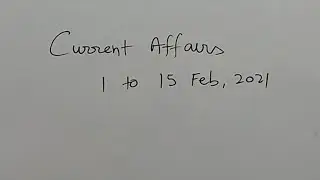 Current Affairs
1 to 15 Feb, 2021